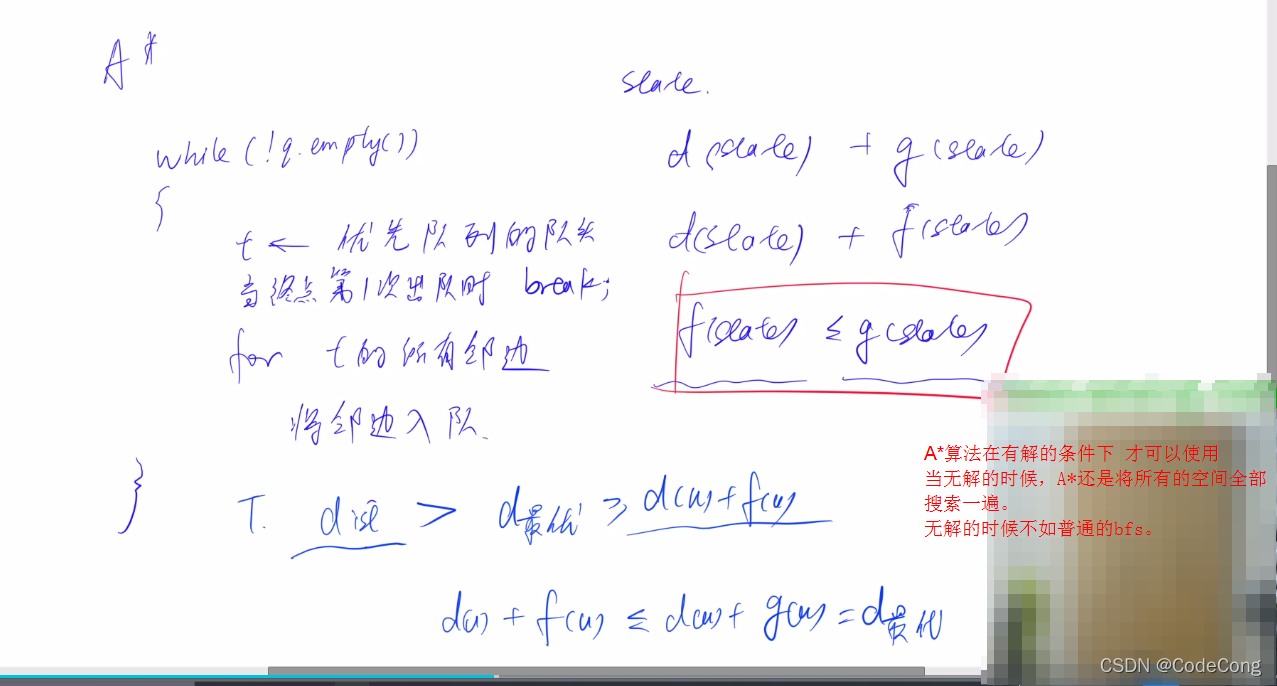 A*
while (!q.empty())
{
t ← 优先队列的队头
当终点第1次出队时 break;
for t的所有邻边
将邻边入队.
}
state.
d(state) + g(state)
d(state) + f(state)
f(state) ≤ g(state)
T. dist > d最优 ≥ d(u)+f(u)
d(u) + f(u) ≤ d(u) + g(u) = d最优
A*算法在有解的条件下 才可以使用
当无解的时候，A*还是将所有的空间全部
搜索一遍。
无解的时候不如普通的bfs。
CSDN @CodeCong